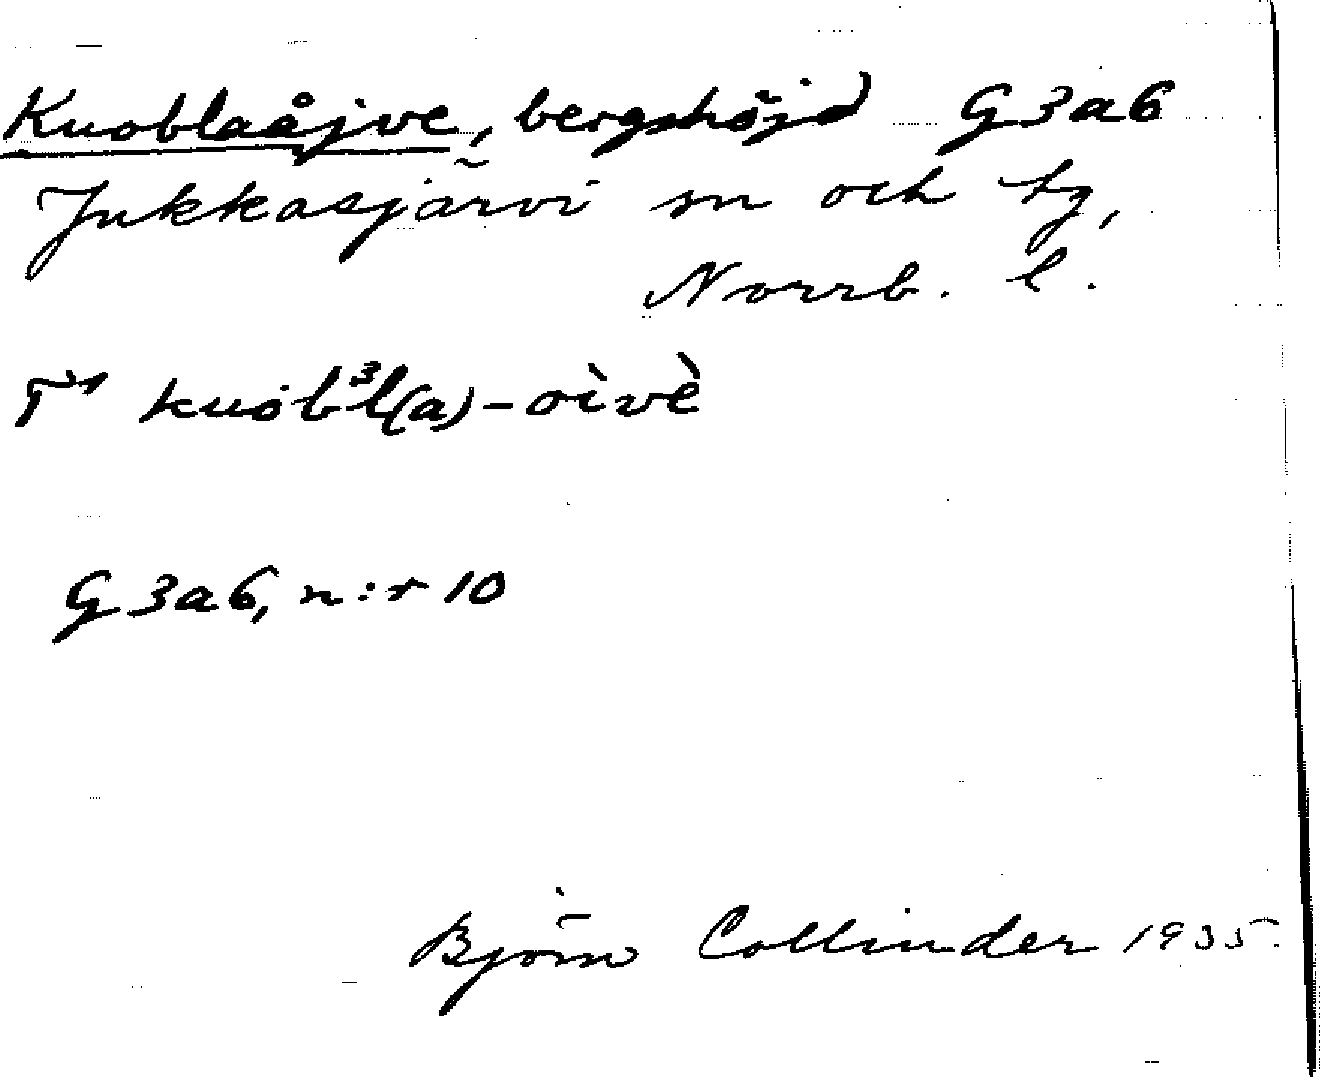 Kuoblaåjve, bergshöjd G3a6
Jukkasjärvi sn och tg,
Norrb. l.
kuobˀl(a)-oìvè
G3a6, n:r 10
Björn Collinder 1935.